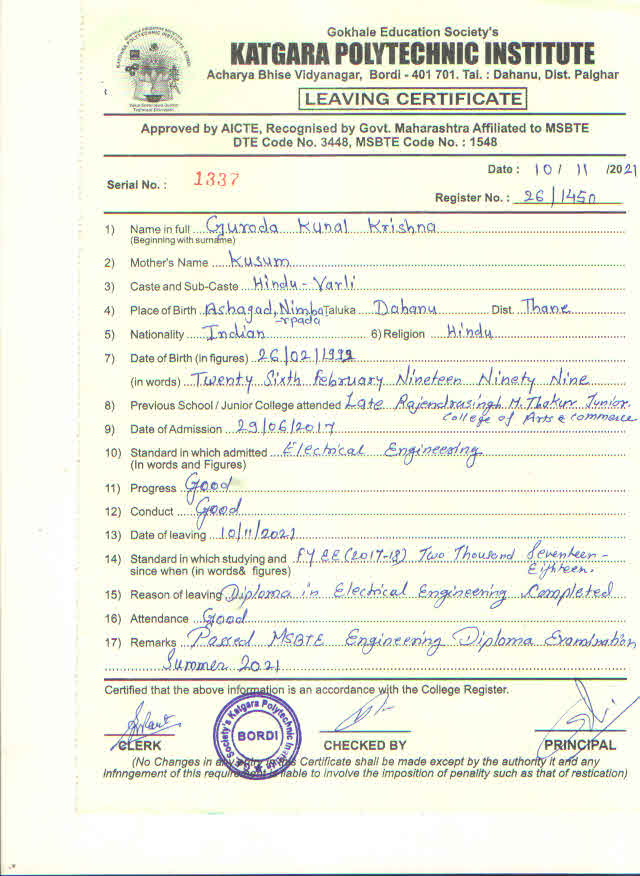 Gokhale Education Society's
KATGARA POLYTECHNIC INSTITUTE
Acharya Bhise Vidyanagar, Bordi - 401 701. Tal. : Dahanu, Dist. Palghar
LEAVING CERTIFICATE
Approved by AICTE, Recognised by Govt. Maharashtra Affiliated to MSBTE
DTE Code No. 3448, MSBTE Code No. : 1548
Date : 10 / 11 /2021
Serial No. : 1337
Register No. : 26/1450
1) Name in full Guroda Kunal Krishna
(Beginning with surname)
2) Mother's Name Kusum
3) Caste and Sub-Caste Hindu - Varli
4) Place of Birth Ashagad, Nimba Taluka Dahanu Dist. Thane
-rpada
5) Nationality Indian 6) Religion Hindu
7) Date of Birth (in figures) 26/02/1999
(in words) Twenty Sixth February Nineteen Ninety Nine
8) Previous School / Junior College attended Late Rajendrasingh H. Thakur Junior
College of Arts & commerce
9) Date of Admission 29/06/2017
10) Standard in which admitted Electrical Engineering
(In words and Figures)
11) Progress Good
12) Conduct Good
13) Date of leaving 10/11/2021
14) Standard in which studying and FYEE (2017-18) Two Thousand Seventeen -
since when (in words& figures) Eighteen.
15) Reason of leaving Diploma in Electrical Engineering Completed
16) Attendance Good
17) Remarks Passed MSBTE Engineering Diploma Examination
Summer 2021
Certified that the above information is an accordance with the College Register.
BORDI
CLERK CHECKED BY PRINCIPAL
(No Changes in any entry in this Certificate shall be made except by the authority it and any
Infnngement of this requirement is liable to involve the imposition of penality such as that of restication)